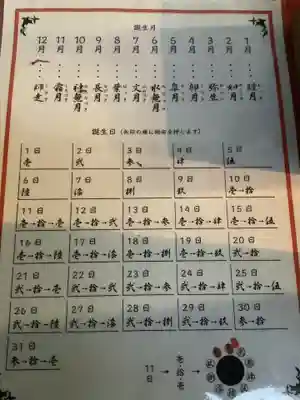 誕生月
1月…睦月
2月…如月
3月…弥生
4月…卯月
5月…皐月
6月…水無月
7月…文月
8月…葉月
9月…長月
10月…神無月
11月…霜月
12月…師走
誕生日（矢印の順に を押します）
1日 2日 3日 4日 5日
壱 弐 参 肆 伍
6日 7日 8日 9日 10日
陸 漆 捌 玖 壱→拾
11日 12日 13日 14日 15日
壱→拾→壱 壱→拾→弐 壱→拾→参 壱→拾→肆 壱→拾→伍
16日 17日 18日 19日 20日
壱→拾→陸 壱→拾→漆 壱→拾→捌 壱→拾→玖 弐→拾
21日 22日 23日 24日 25日
弐→拾→壱 弐→拾→弐 弐→拾→参 弐→拾→肆 弐→拾→伍
26日 27日 28日 29日 30日
弐→拾→陸 弐→拾→漆 弐→拾→捌 弐→拾→玖 参→拾
31日
参→拾→壱
11日
→
壱→拾→壱